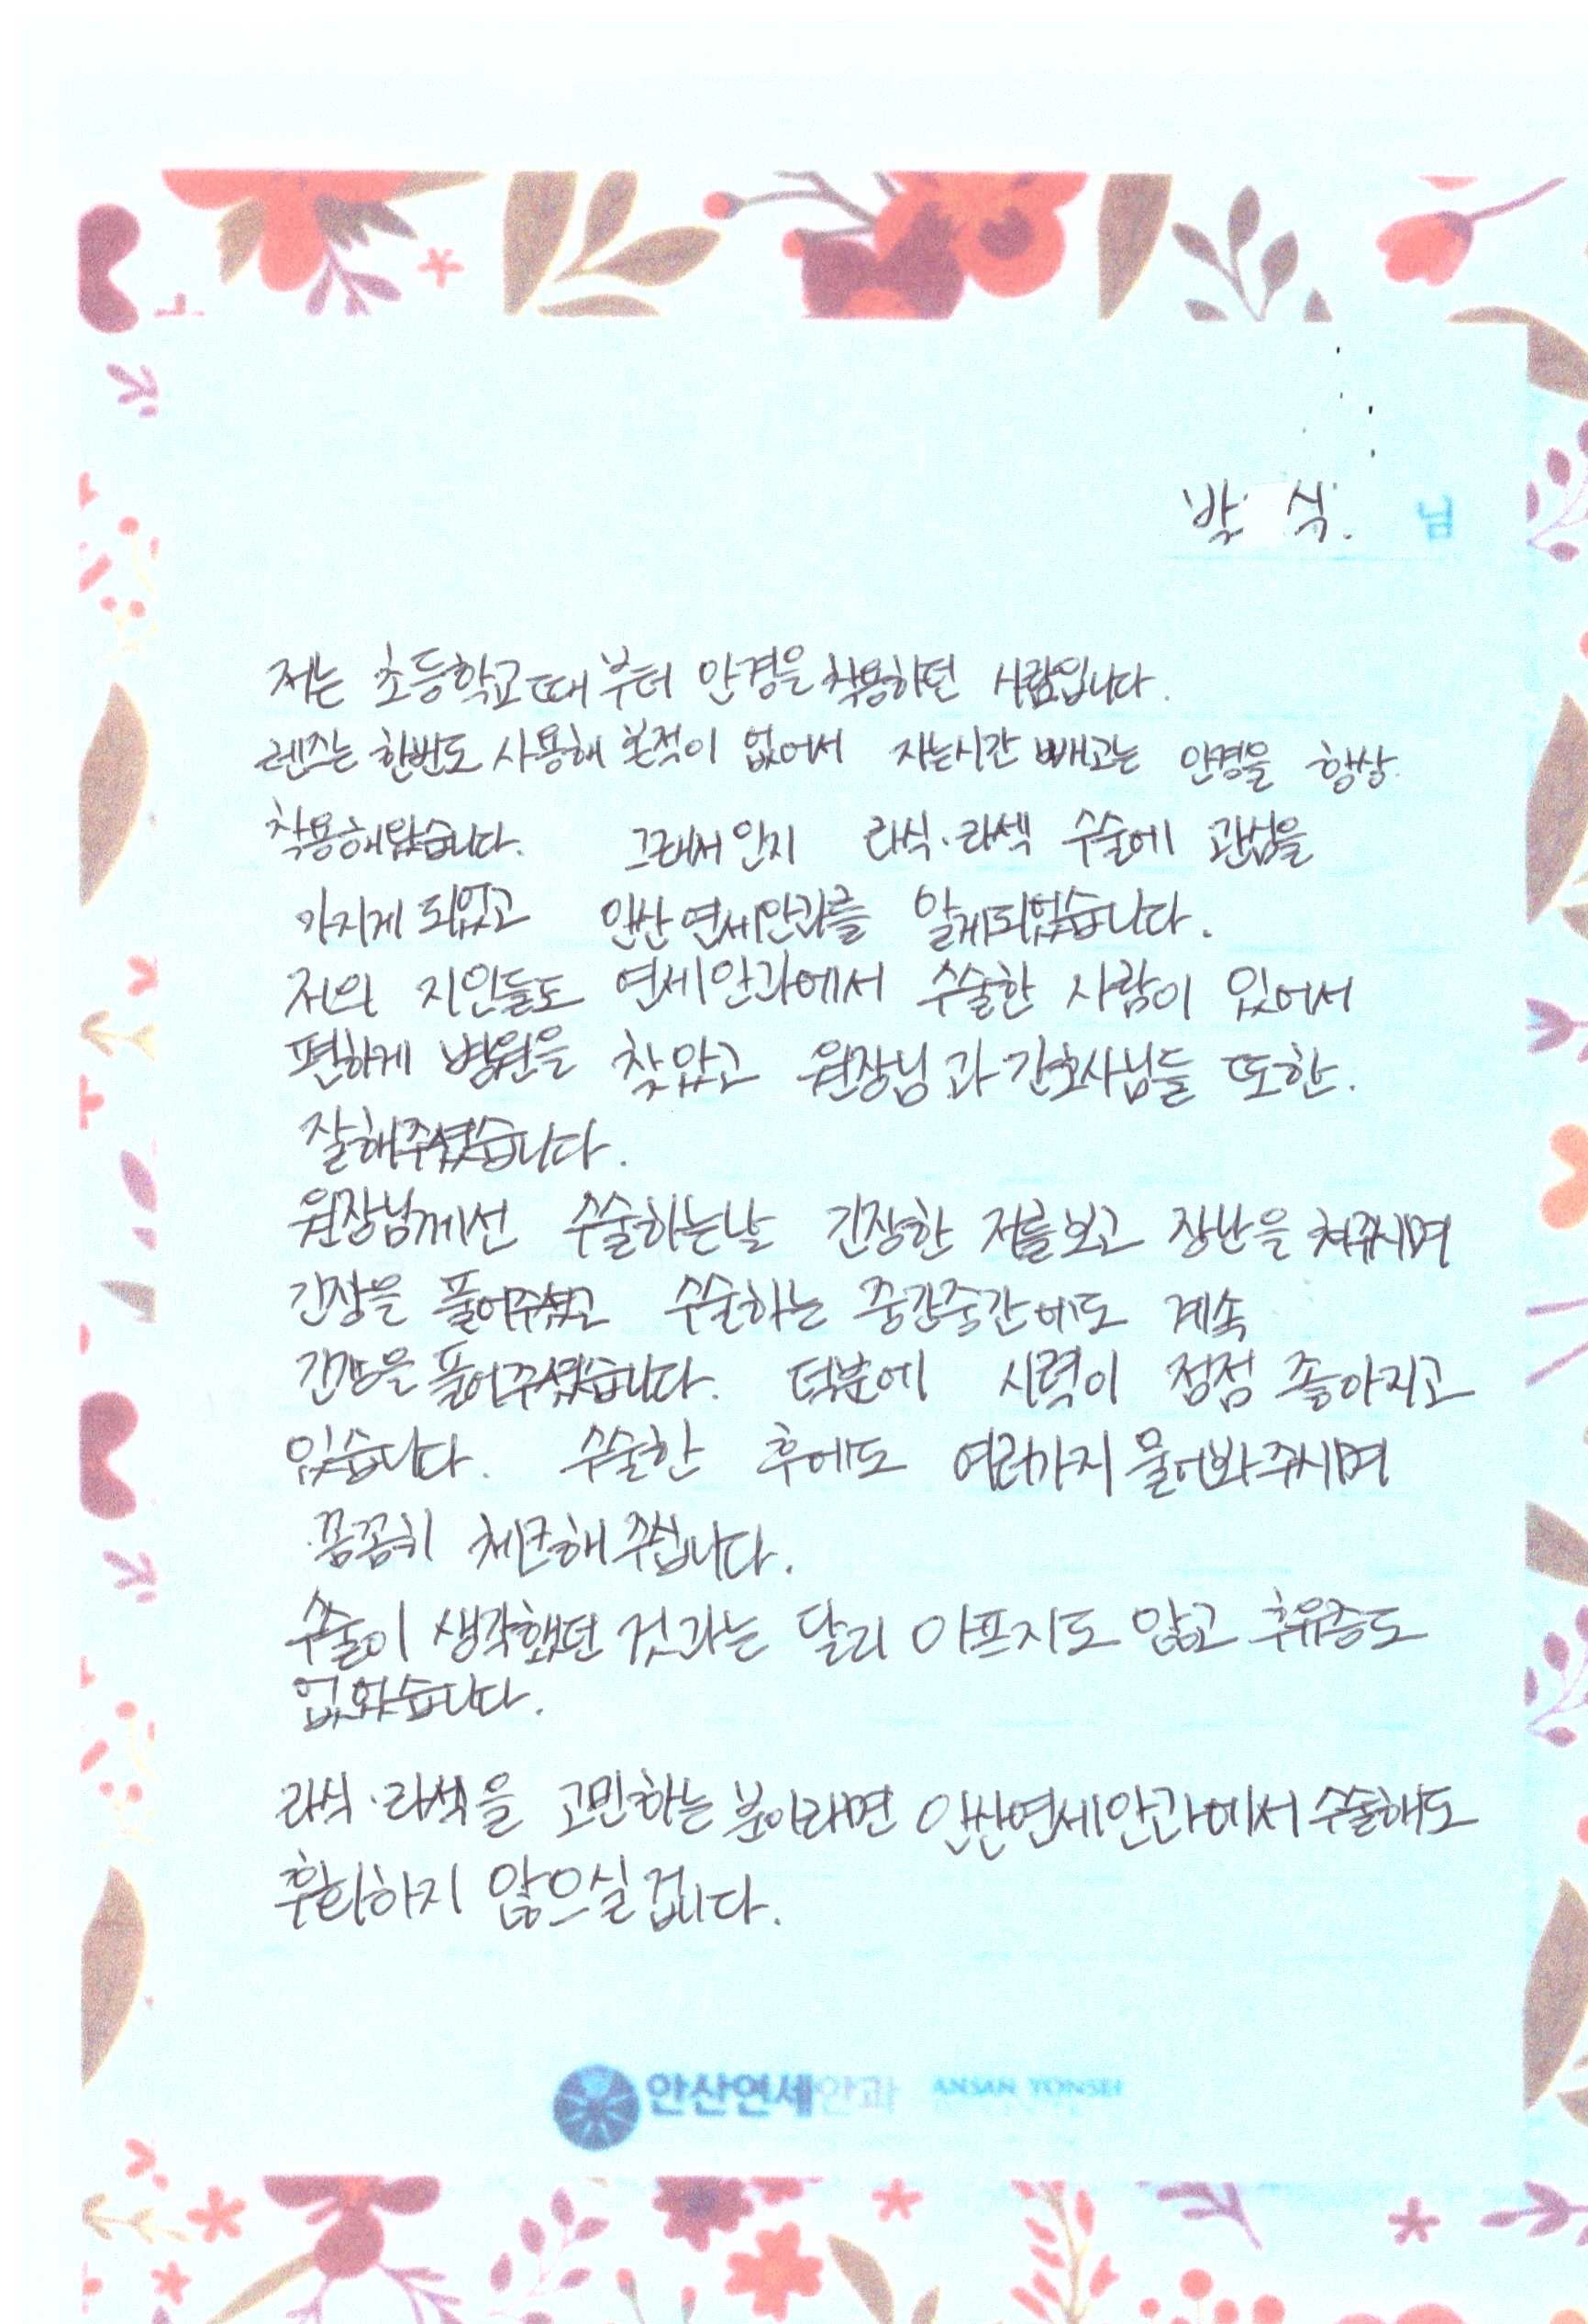 박 식. 님
저는 초등학교때부터 안경을 착용하던 사람입니다.
렌즈는 한번도 사용해 본적이 없어서 자는시간 빼고는 안경을 항상
착용해왔습니다. 그래서인지 라식·라섹 수술에 관심을
가지게 되었고 안산연세안과를 알게되었습니다.
저의 지인들도 연세안과에서 수술한 사람이 있어서
편하게 병원을 찾았고 원장님과 간호사님들 또한.
잘해주셨습니다.
원장님께선 수술하는날 긴장한 저를보고 장난을 쳐주시며
긴장을 풀어주셨고 수술하는 중간중간에도 계속
긴장을 풀어주셨습니다. 덕분에 시력이 점점 좋아지고
있습니다. 수술한 후에도 여러가지 물어봐주시며
꼼꼼히 체크해 주십니다.
수술이 생각했던 것과는 달리 아프지도 않고 후유증도
없었습니다.
라식·라섹을 고민하는 분이라면 안산연세안과에서 수술해도
후회하지 않으실겁니다.
안산연세안과 ANSAN YONSEI